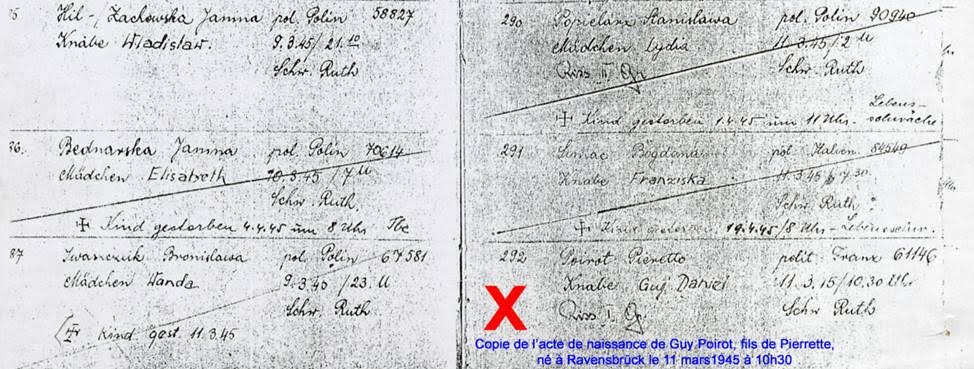 Hil-/Zackowska Janina pol. Polin 58827
Knabe Wladislaw. 9.3.45/21.10
Schw. Ruth
86. Bednarska Janina pol. Polin 70614
Mädchen Elisabeth 10.3.45/7 U
Schw. Ruth.
Kind gestorben 4.4.45 um 8 Uhr Tbc
87 Iwanczuk Bronislawa pol. Polin 67581
Mädchen Wanda 9.3.45/23. U
Schw. Ruth
Kind gest. 11.3.45
290 Popielarz Stanislawa pol. Polin 90940
Mädchen Lydia 11.3.45/2 U
Riss II. Gr. Schw. Ruth
Kind gestorben 1.4.45 um 11 Uhr - Lebens-
schwäche
291 Bogdana pol. Italien 84549
Knabe Franziska 11.3.45 / 7.30
Schw. Ruth
Kind gestorben 19.4.45/8 Uhr - Lebensschw.
292 Poirot Pierette polit Franz 61146
Knabe Guy Daniel 11.3.45/10,30 Uhr
Riss I. Gr. Schw. Ruth
X
Copie de l'acte de naissance de Guy Poirot, fils de Pierrette,
né à Ravensbrück le 11 mars1945 à 10h30